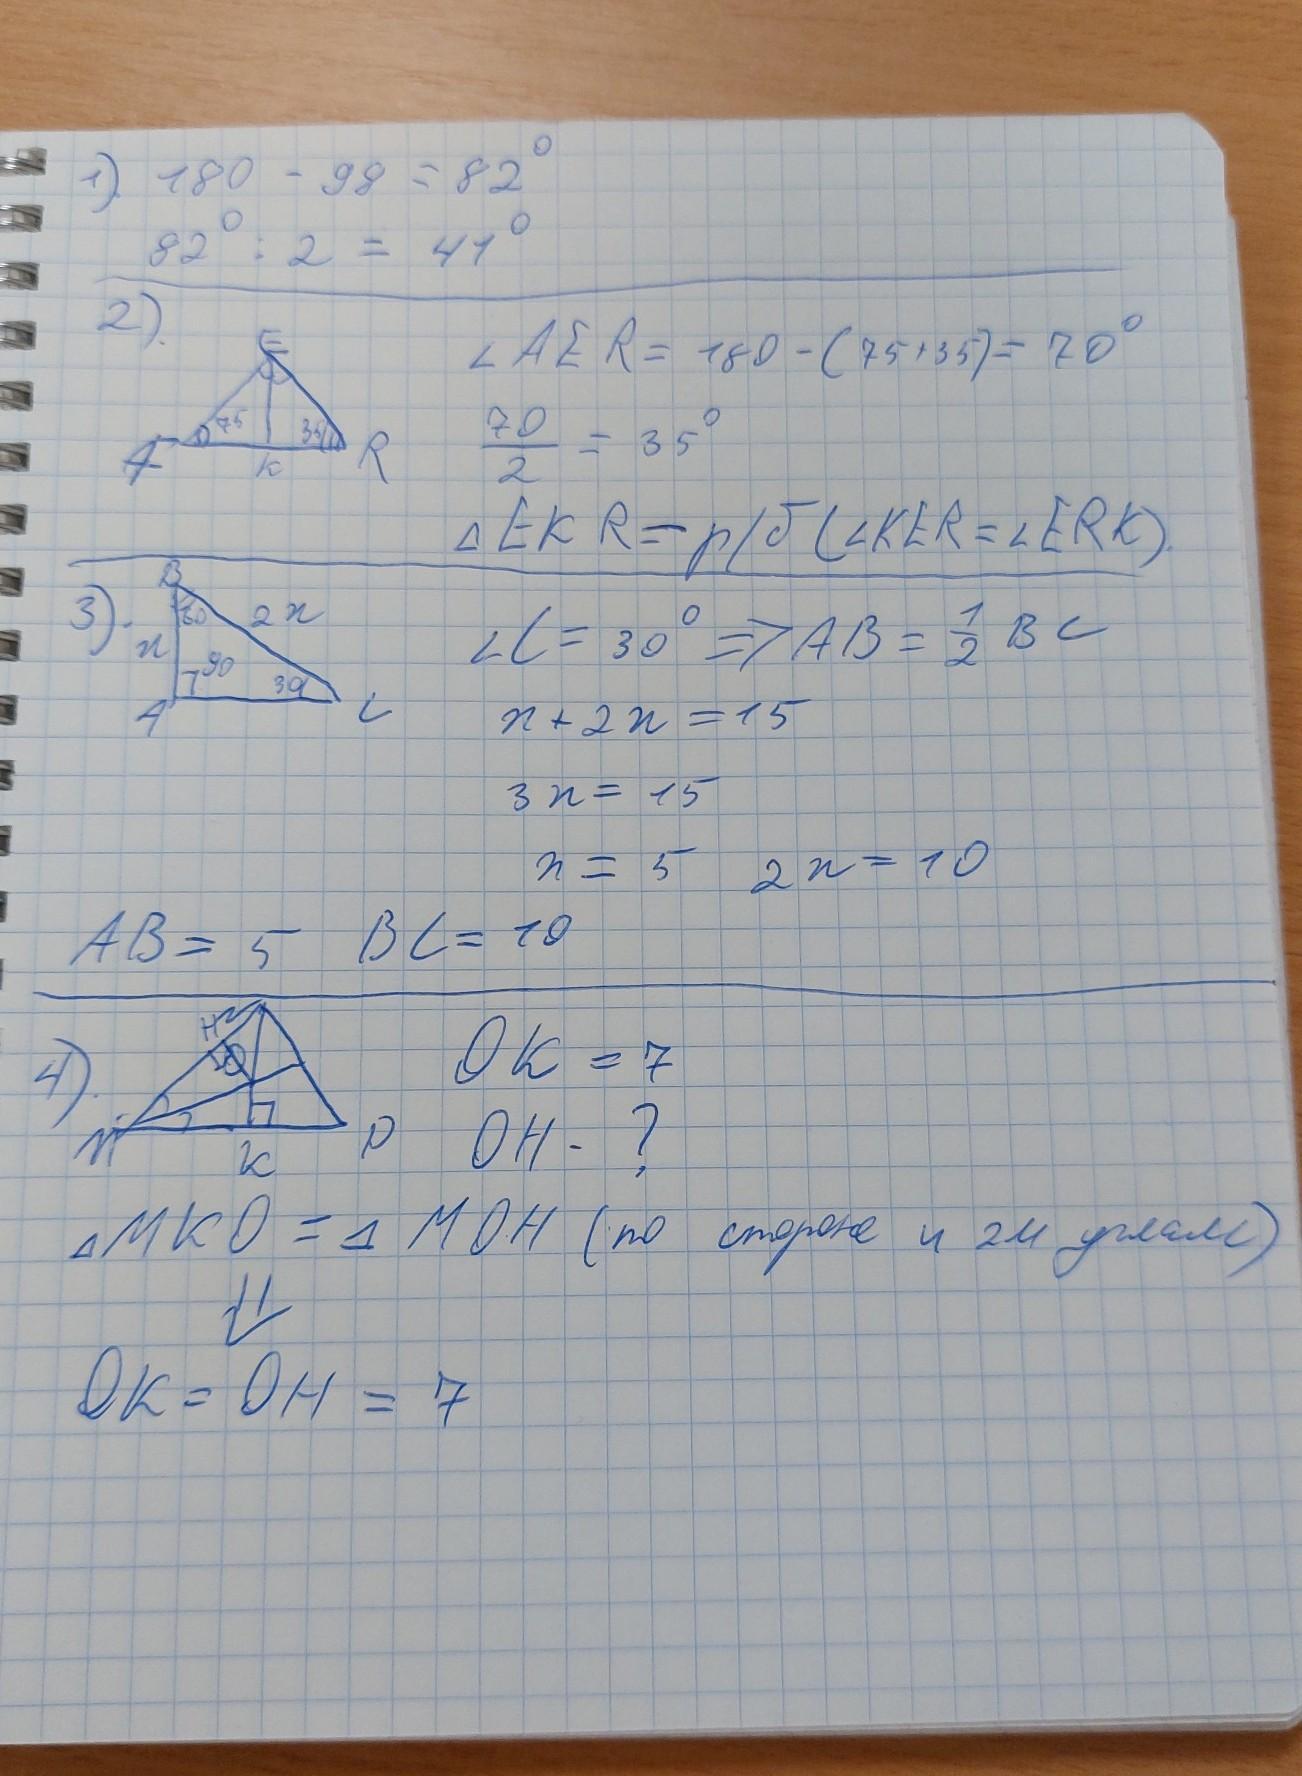 1). 180 - 98 = 82°
82° : 2 = 41°
2).
E
75
35
A
K
R
∠AER = 180 - (75+35) = 70°
70/2 = 35°
△EKR = р/б (∠KER = ∠ERK).
3).
B
60
2x
x
90
30
A
C
∠C = 30° => AB = 1/2 BC
x + 2x = 15
3x = 15
x = 5 2x = 10
AB = 5 BC = 10
4).
H
O
M
K
P
OK = 7
OH - ?
△MKO = △MOH (по стороне и 2м углам)
⇓
OK = OH = 7